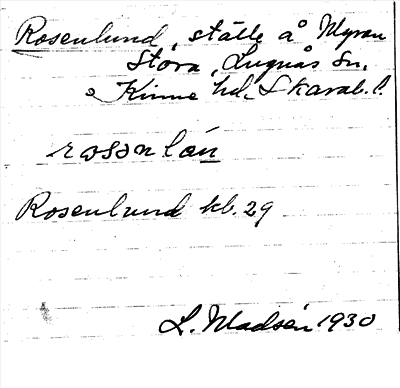 Rosenlund, ställe å Myran
Stora, Lugnås Sn.
Kinne hd. Skarab. l.
rosənlən
Rosenlund kb. 29
L. Madsén 1930